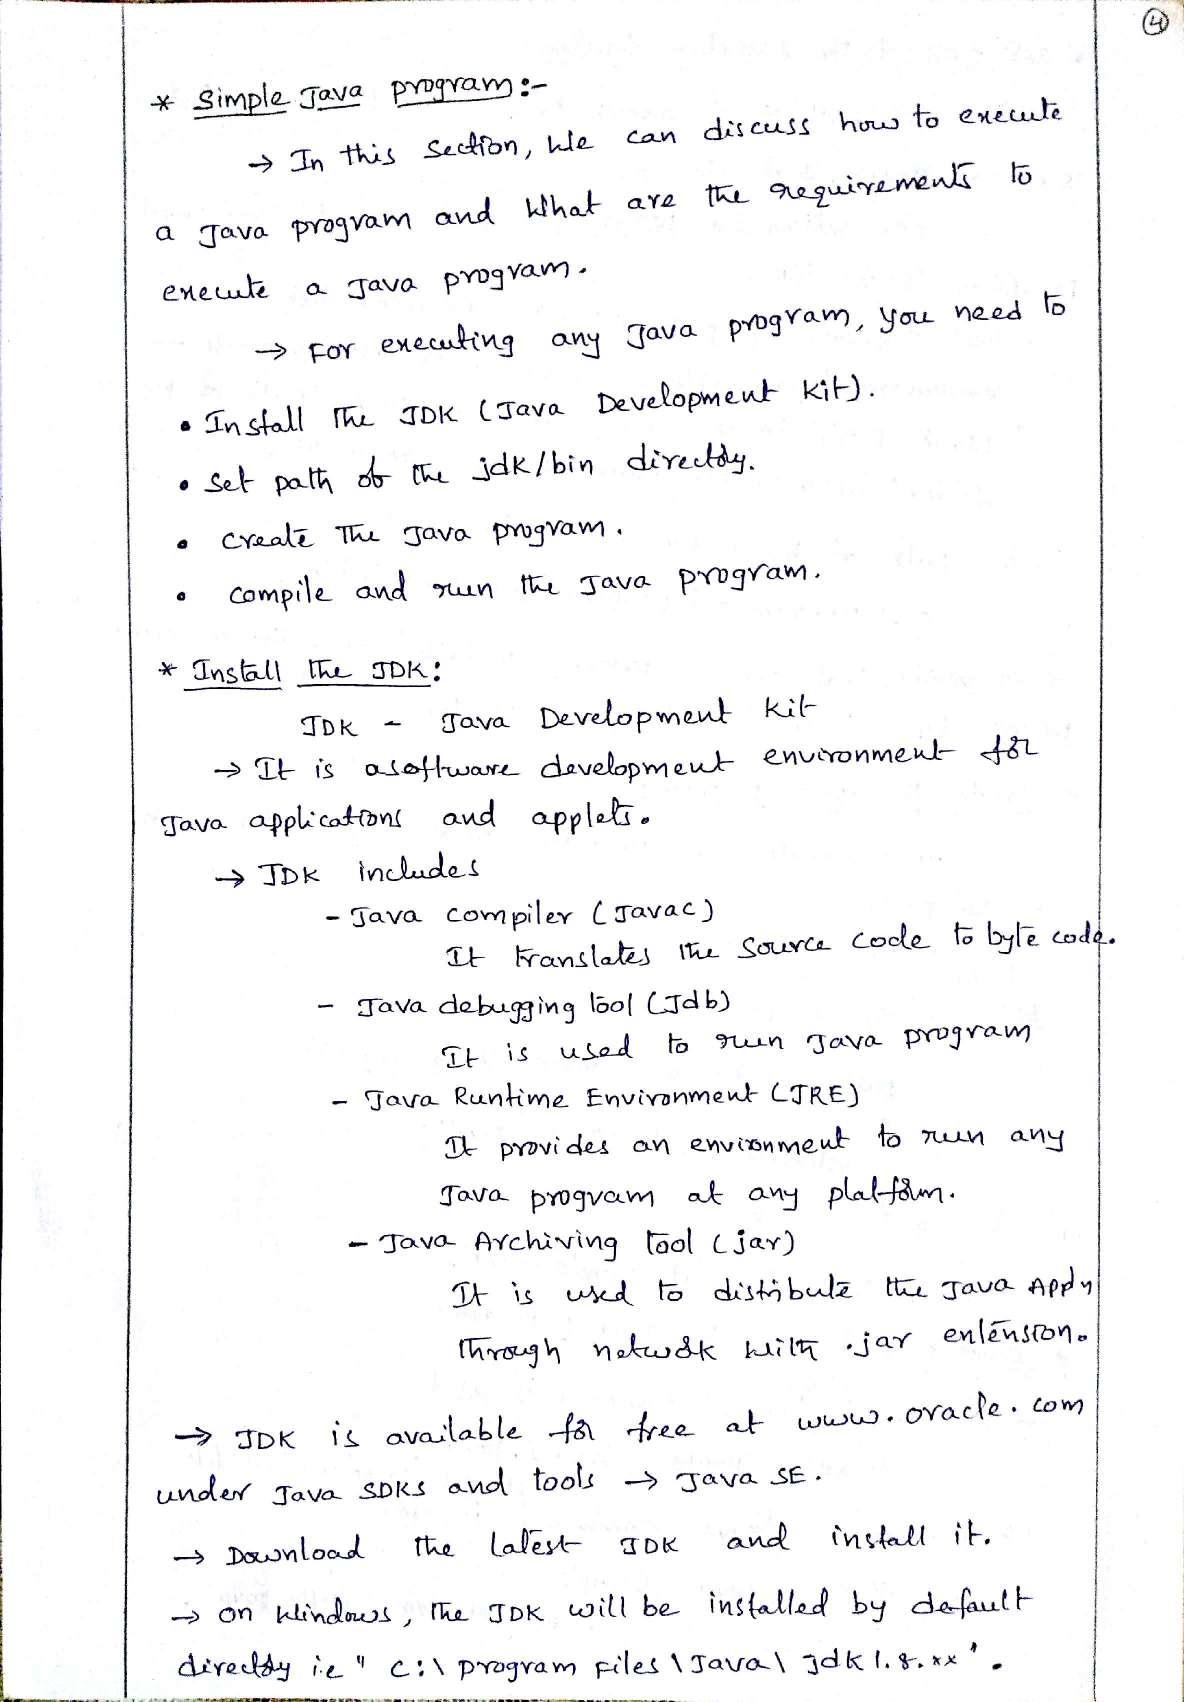 4
* Simple Java program :-
→ In this section, We can discuss how to execute
a Java program and What are the requirements to
execute a Java program.
→ For executing any Java program, you need to
• Install The JDK (Java Development Kit).
• Set path of the jdk/bin directory.
• create The Java program.
• compile and run the Java program.
* Install the JDK:
JDK - Java Development Kit
→ It is a software development environment for
Java applications and applets.
→ JDK includes
- Java compiler (Javac)
It translates the source code to byte code.
- Java debugging tool (Jdb)
It is used to run Java program
- Java Runtime Environment (JRE)
It provides an environment to run any
Java program at any platform.
- Java Archiving tool (jar)
It is used to distribute the Java Appn
through network with .jar extension.
→ JDK is available for free at www.oracle.com
under Java SDKs and tools → Java SE.
→ Download the latest JDK and install it.
→ on Windows, The JDK will be installed by default
directory i.e " C:\ program Files \ Java \ Jdk 1.8.xx ".